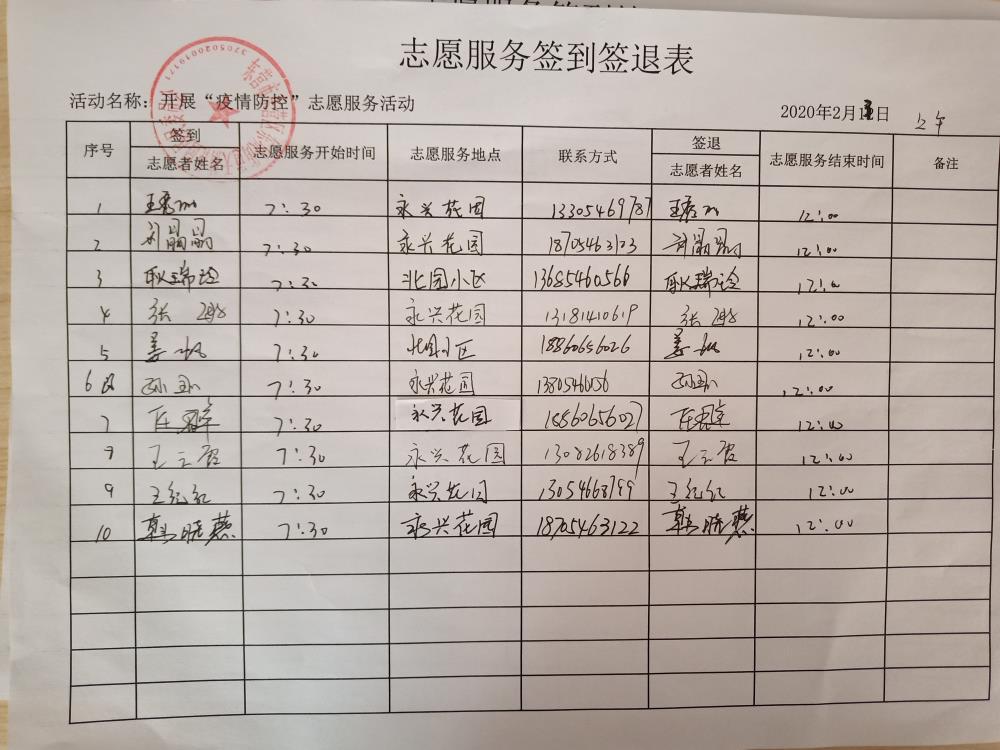 志愿服务签到签退表
活动名称：开展“疫情防控”志愿服务活动
2020年2月13日 上午
序号 签到 志愿服务开始时间 志愿服务地点 联系方式 签退 志愿服务结束时间 备注
志愿者姓名 志愿者姓名
1 7:30 永兴花园 13305469787 12:00
2 刘晶晶 7:30 永兴花园 18705463123 刘晶晶 12:00
3 耿瑞玲 7:30 北园小区 13685460566 耿瑞玲 12:00
4 张 7:30 永兴花园 13181410619 张 12:00
5 姜帆 7:30 北园小区 18860656026 姜帆 12:00
6 孙 7:30 永兴花园 1380546056 孙 12:00
7 7:30 永兴花园 18860656027 12:00
7 王 7:30 永兴花园 13082618389 王 12:00
9 王纪红 7:30 永兴花园 13054668799 王纪红 12:00
10 韩晓燕 7:30 永兴花园 18705463122 韩晓燕 12:00